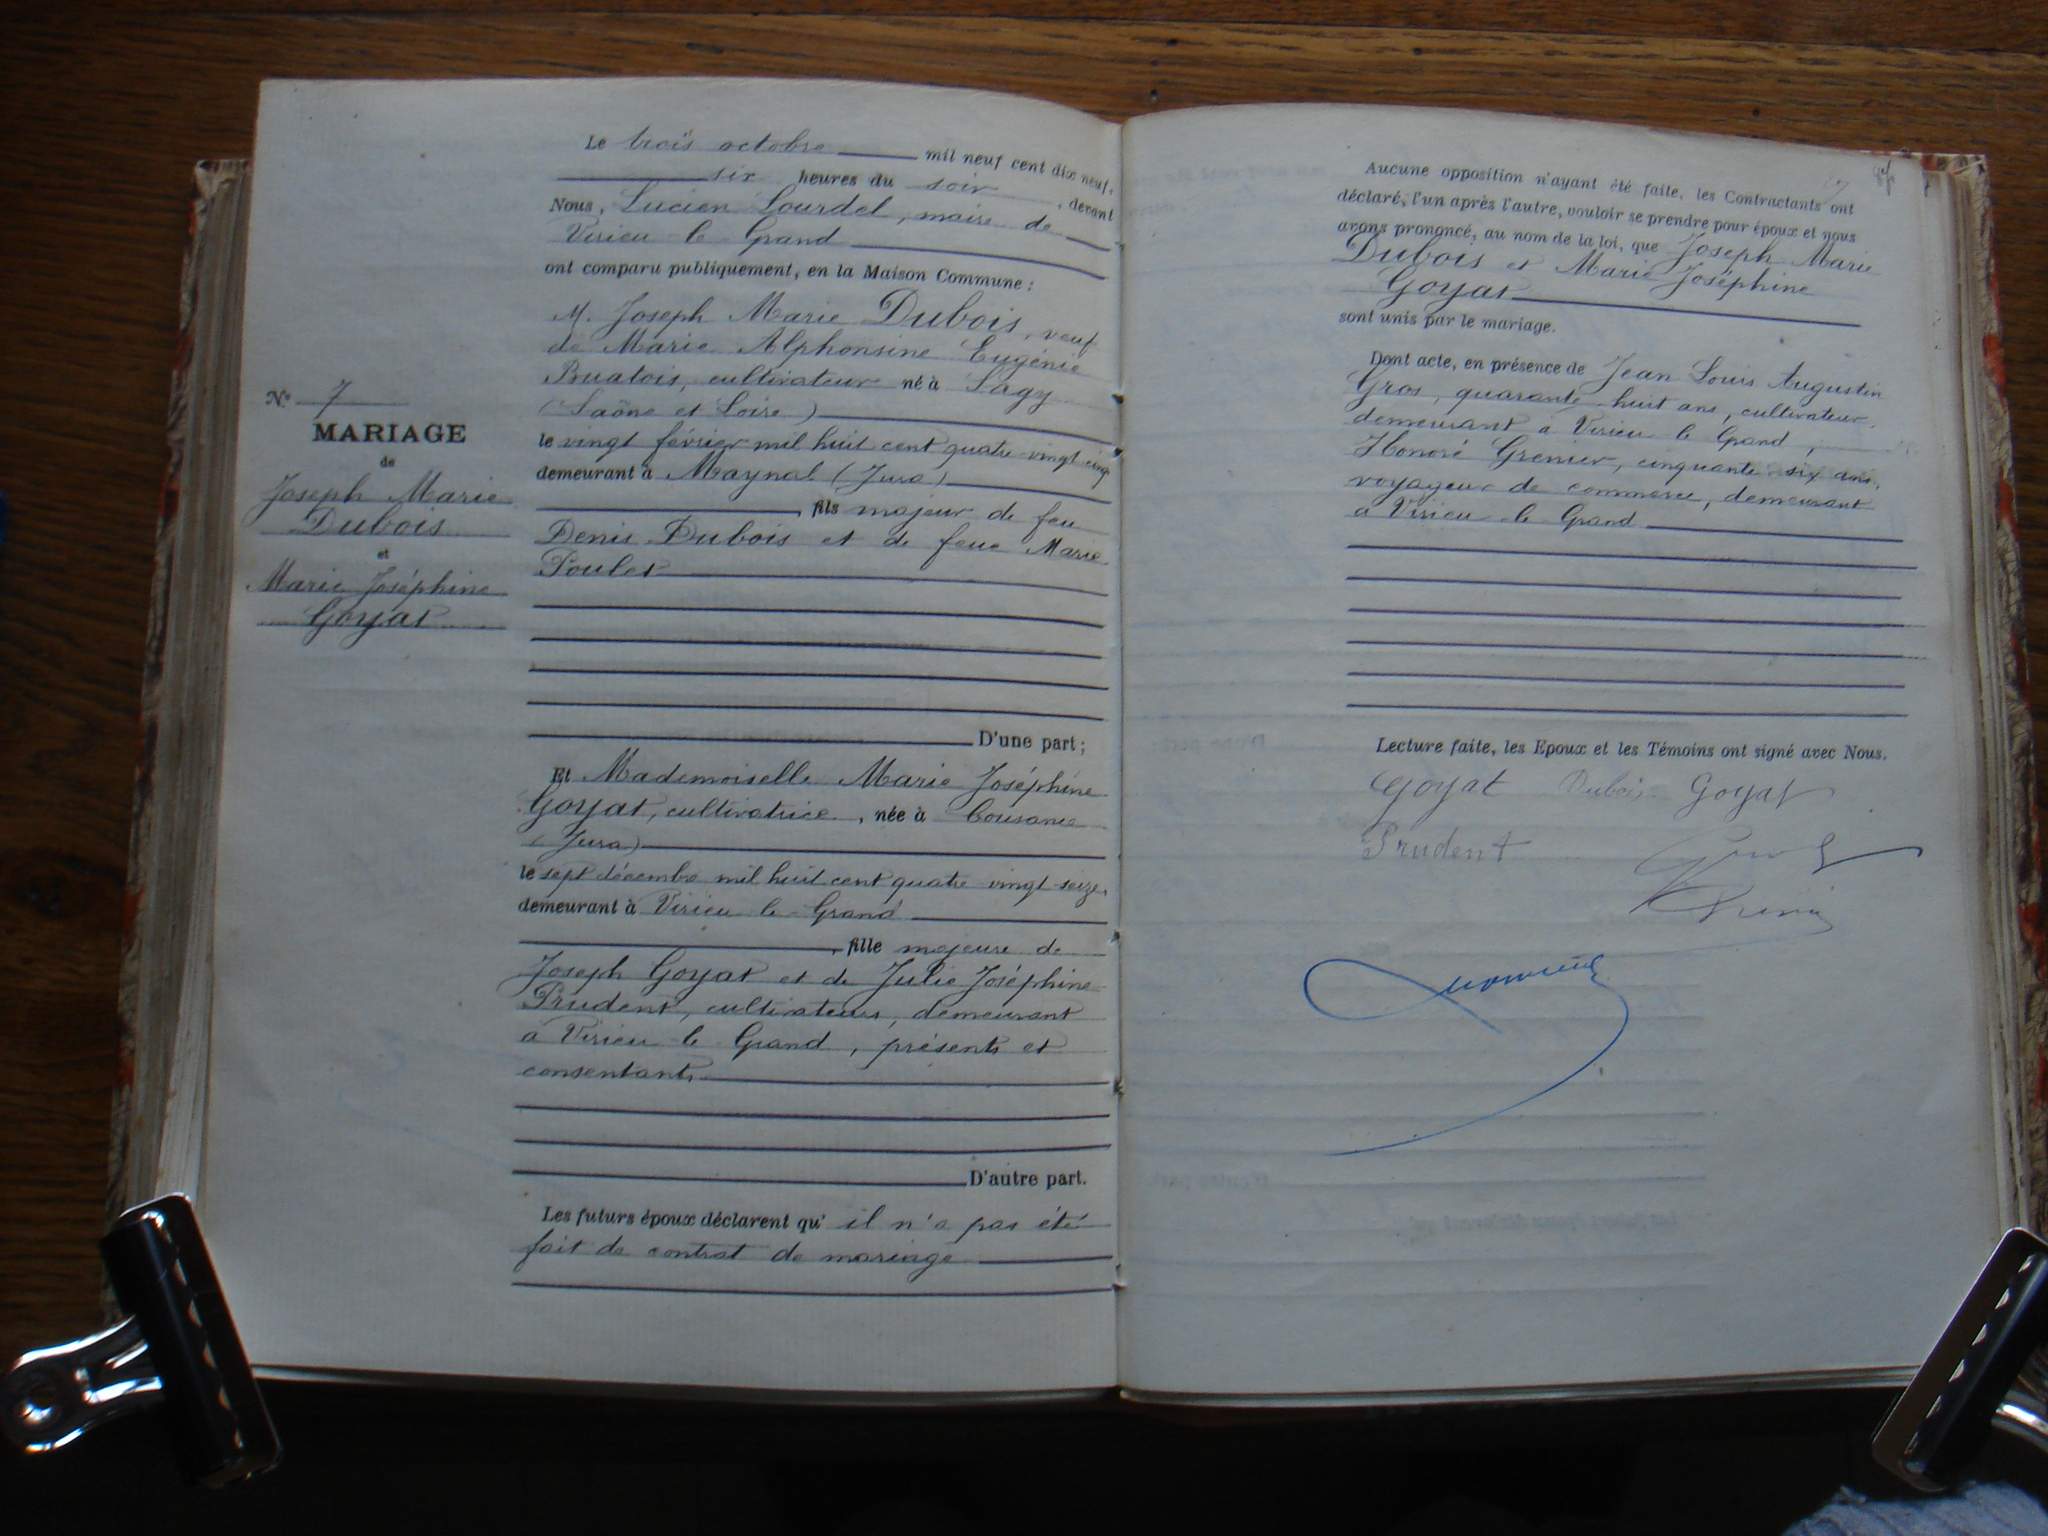 Le trois octobre mil neuf cent dix neuf,
six heures du soir, devant
Nous, Lucien Lourdel, maire de
Virieu-le-Grand
ont comparu publiquement, en la Maison Commune :
M. Joseph Marie Dubois, veuf
de Marie Alphonsine Eugénie
Buatois, cultivateur né à Sagy
(Saône et Loire)
le vingt février mil huit cent quatre-vingt-cinq
demeurant à Maynal (Jura)
, fils majeur de feu
Denis Dubois et de feue Marie
Poulet
D'une part ;
Et Mademoiselle Marie Joséphine
Goyat, cultivatrice, née à Cousance
(Jura)
le sept décembre mil huit cent quatre-vingt-seize,
demeurant à Virieu-le-Grand
, fille majeure de
Joseph Goyat et de Julie Joséphine
Prudent, cultivateurs, demeurant
à Virieu-le-Grand, présents et
consentants
D'autre part.
Les futurs époux déclarent qu' il n'a pas été
fait de contrat de mariage
No 7
MARIAGE
de
Joseph Marie
Dubois
et
Marie Joséphine
Goyat
Aucune opposition n'ayant été faite, les Contractants ont
déclaré, l'un après l'autre, vouloir se prendre pour époux et nous
avons prononcé, au nom de la loi, que Joseph Marie
Dubois et Marie Joséphine
Goyat
sont unis par le mariage.
Dont acte, en présence de Jean Louis Augustin
Gros, quarante-huit ans, cultivateur,
demeurant à Virieu-le-Grand,
Honoré Grenier, cinquante-six ans,
voyageur de commerce, demeurant
à Virieu-le-Grand
Lecture faite, les Epoux et les Témoins ont signé avec Nous.
Goyat Dubois Goyat
Prudent